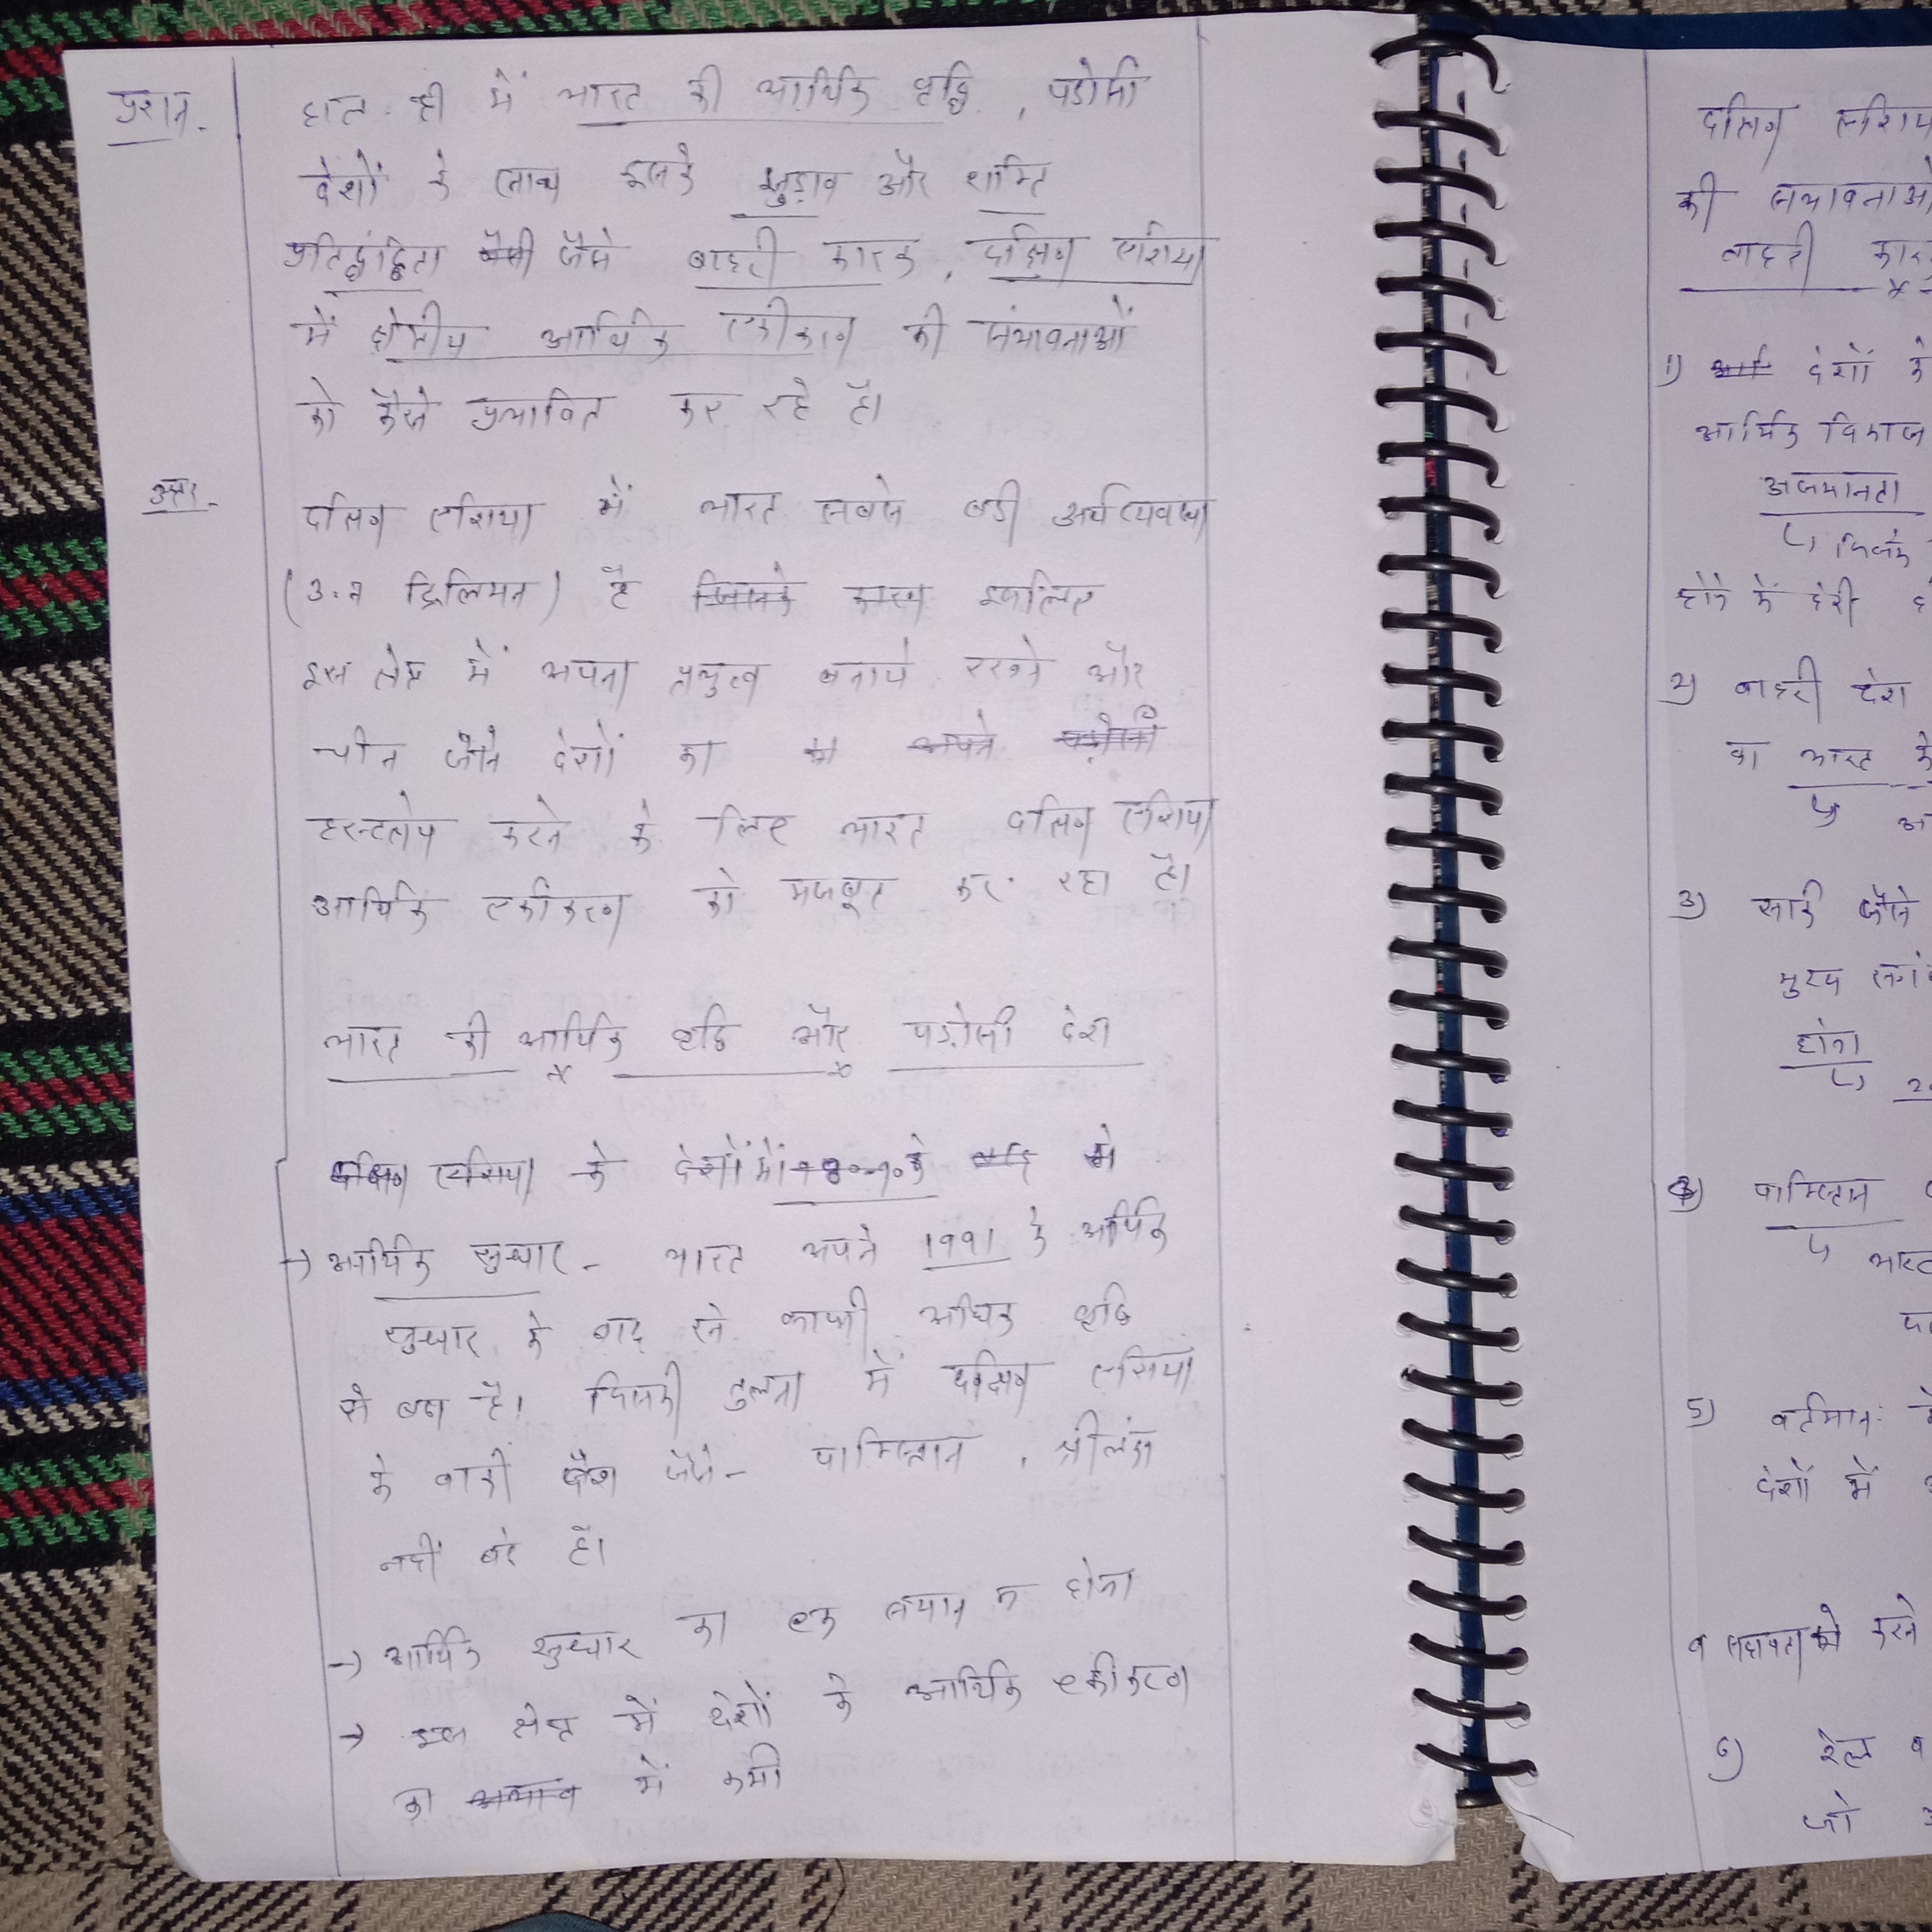 प्रश्न.
हाल ही में भारत की आर्थिक वृद्धि, पडोसी
देशों के साथ इसके जुड़ाव और शक्ति
प्रतिद्वंद्विता जैसे बाहरी कारक, दक्षिण एशिया
में क्षेत्रीय आर्थिक एकीकरण की संभावनाओं
को कैसे प्रभावित कर रहे है।
उत्तर-
दक्षिण एशिया में भारत सबसे बडी अर्थव्यवस्था
(3.7 ट्रिलियन) है जिसके कारण इसलिए
इस क्षेत्र में अपना प्रभुत्व बनाये रखने और
चीन जैसे देशों का अपने पड़ोसी
हस्तक्षेप करने के लिए भारत दक्षिण एशिया
आर्थिक एकीकरण को मजबूत कर रहा है।
भारत की आर्थिक वृद्धि और पड़ोसी देश
दक्षिण एशिया के देशों में के बाद से
→ आर्थिक सुधार - भारत अपने 1991 के आर्थिक
सुधार के बाद से काफी अधिक वृद्धि
से बढा है। जिसकी तुलना में दक्षिण एशिया
के बाकी देश जैसे- पाकिस्तान, श्रीलंका
नहीं बढे है।
→ आर्थिक सुधार का एक समान न होना
→ इस क्षेत्र में देशों के आर्थिक एकीकरण
का अभाव में कमी
दक्षिण एशिय
की संभावनाओ
बाहरी कार
1) देशों के
आर्थिक विकास
असमानता
↳ जिसके
होने में देरी
2) बाहरी देश
का भारत के
↳
3) सार्क जैसे
मुख्य संग
होना
↳
4) पाकिस्तान
↳ भारत
5) वर्तमान
देशों में
व सहायता करने
6) रेल व
जो